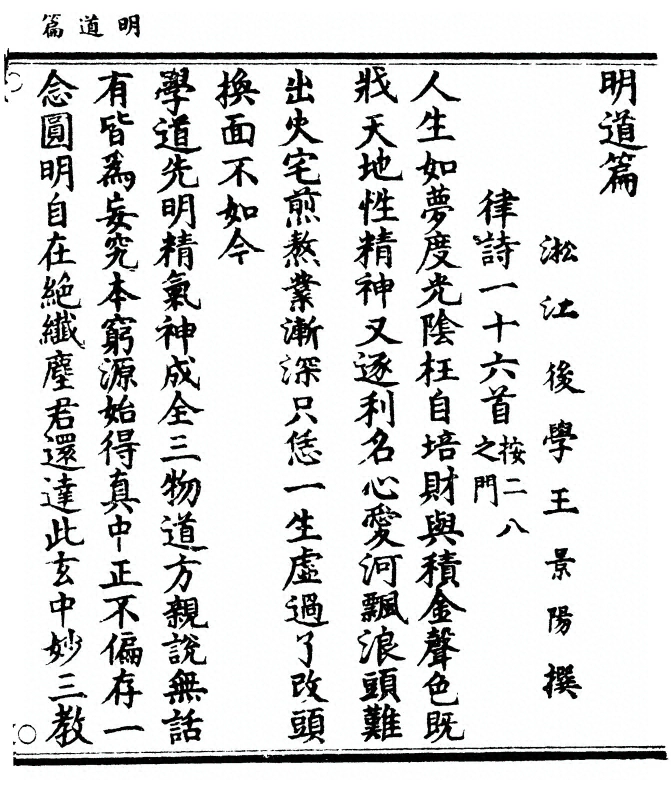 明道篇
明道篇
淞江後學王景陽撰
律詩一十六首按二八之門
人生如夢度光陰枉自培財與積金聲色既
戕天地性精神又逐利名心愛河飄浪頭難
出火宅煎熬業漸深只恁一生虛過了改頭
換面不如今
學道先明精氣神成全三物道方親說無話
有皆為妄究本窮源始得真中正不偏存一
念圓明自在絕纖塵君還達此玄中妙三教